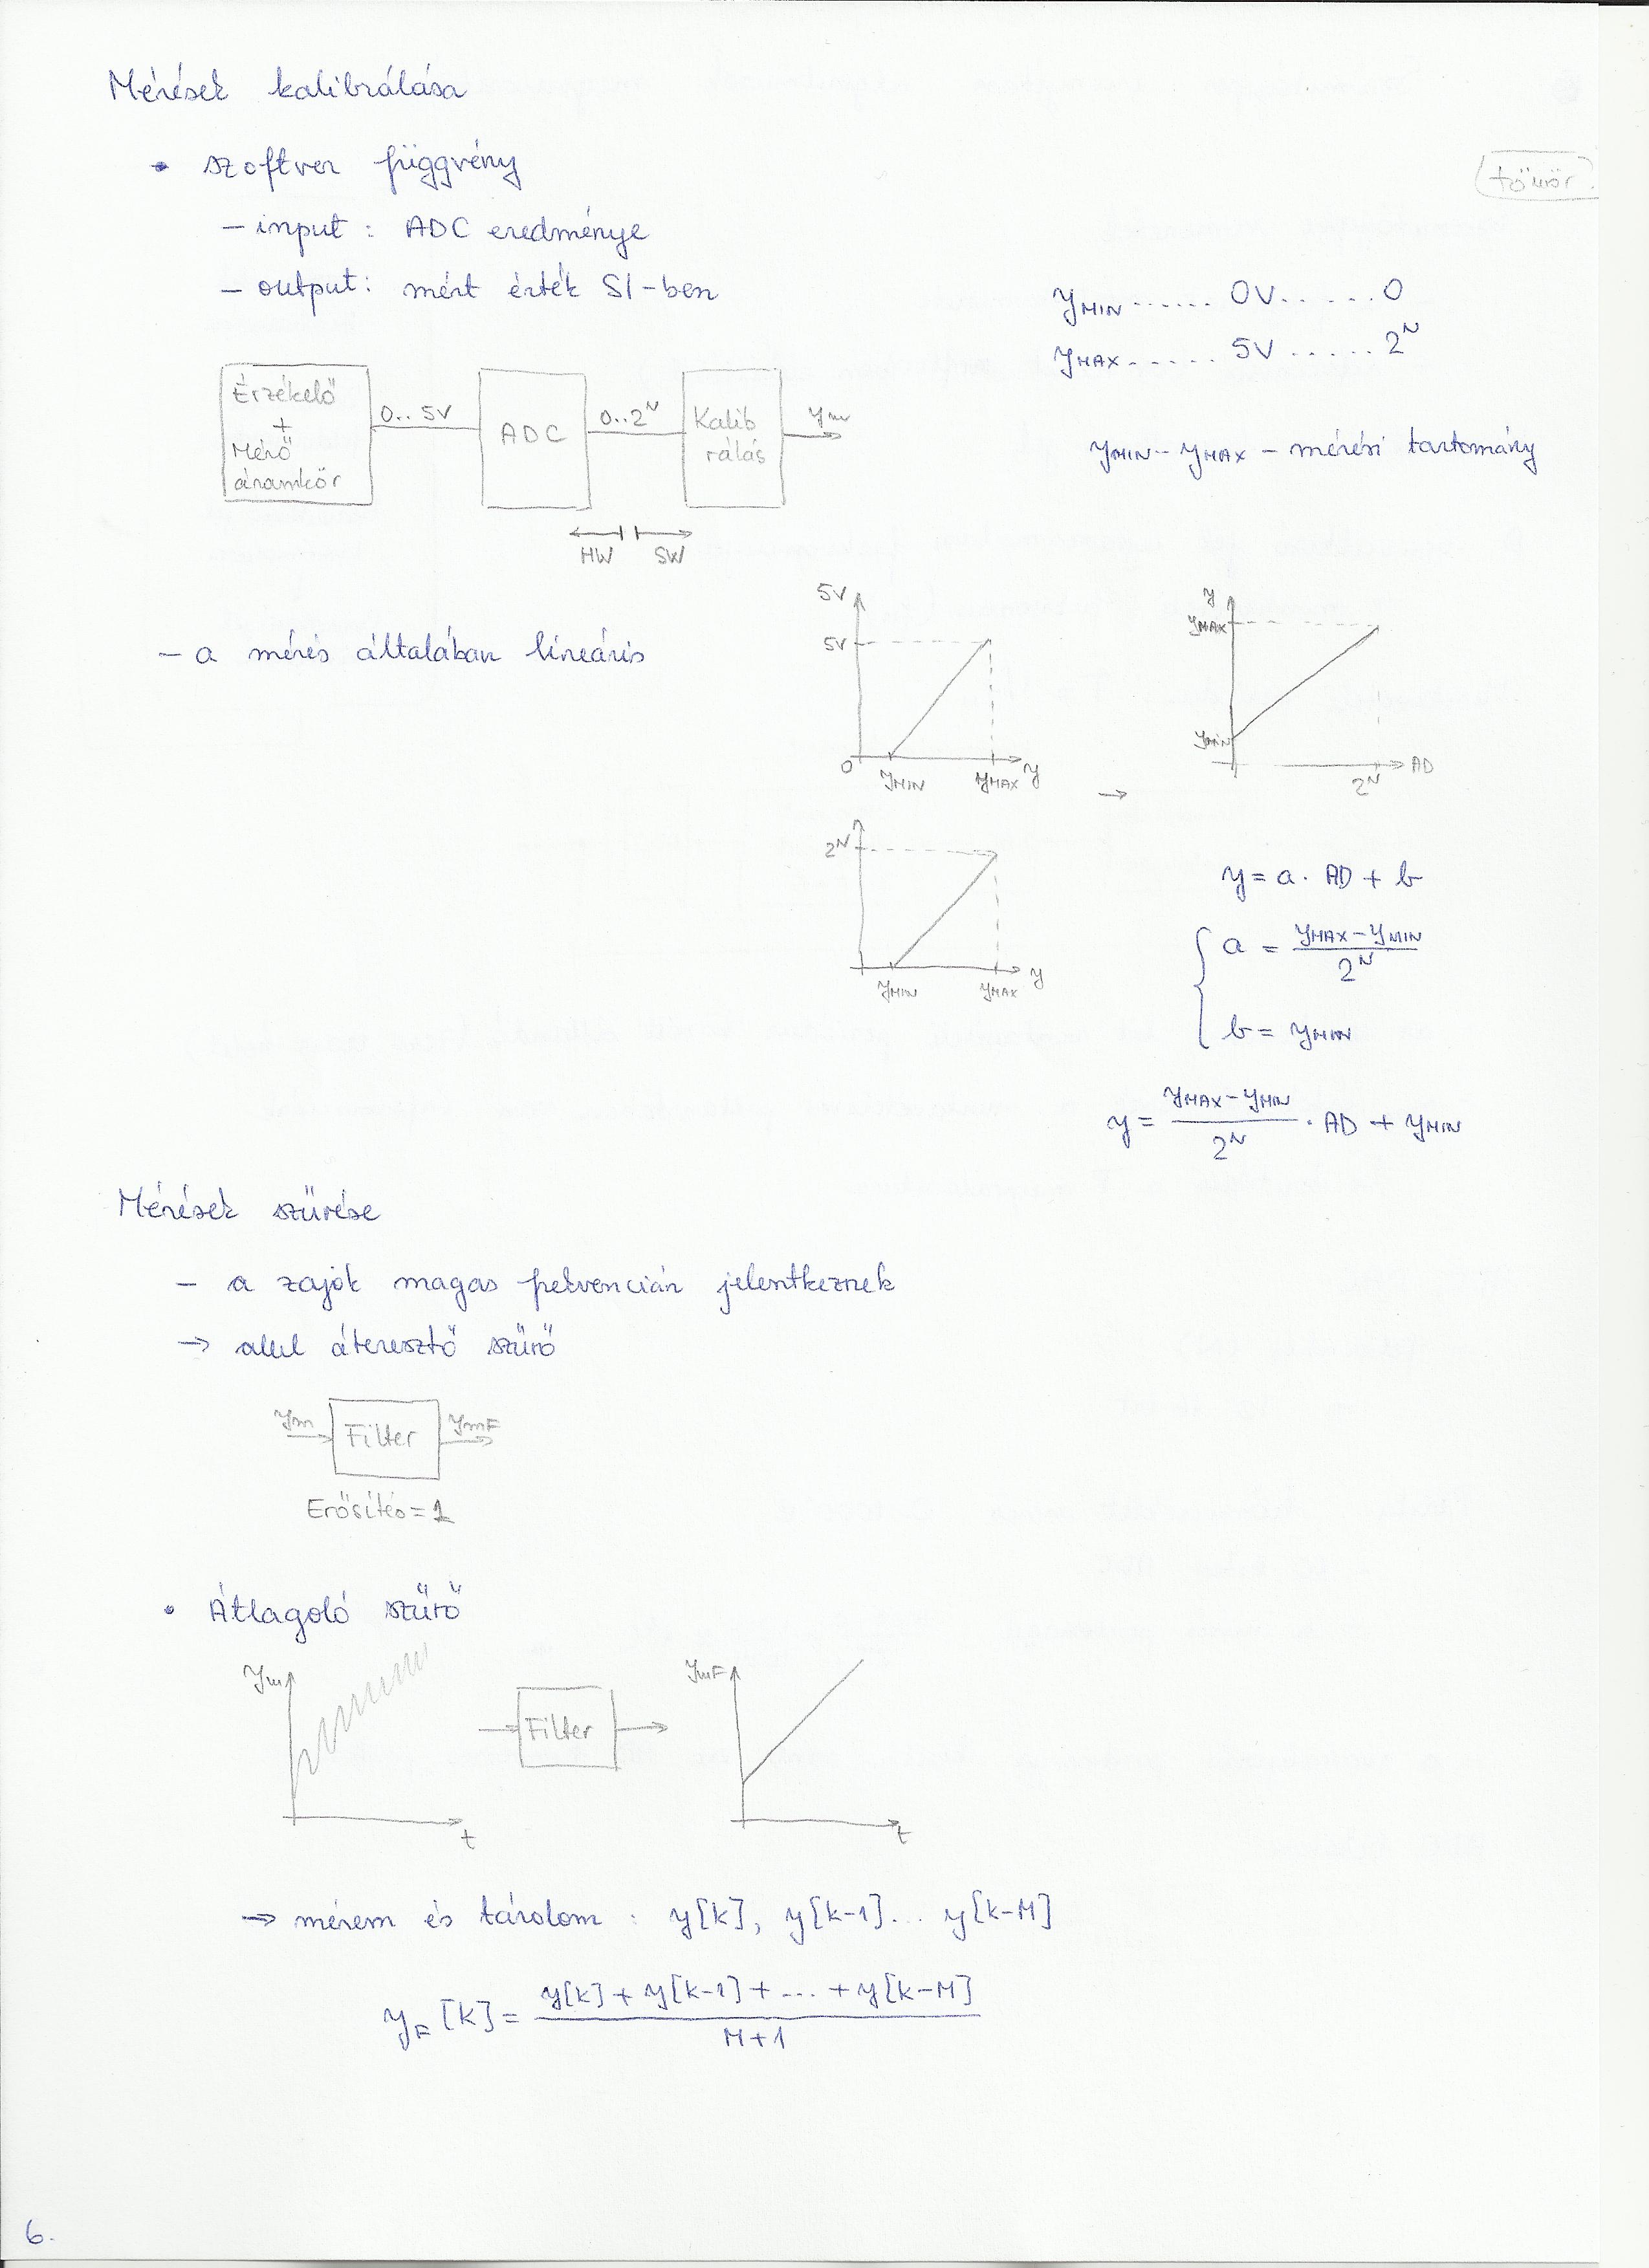 Mérések kalibrálása
• szoftver függvény
tömör.
- input : ADC eredménye
- output : mért érték SI-ben
yMIN ...... 0V ...... 0
yMAX ...... 5V ...... 2^N
Érzékelő
+
Mérő
áramkör
0.. 5V
ADC
0..2^N
Kalib
rálás
ym
yMIN - yMAX - mérési tartomány
HW SW
- a mérés általában lineáris
5V
5V
0
yMIN yMAX y
y
yMAX
yMIN
2^N AD
→
2^N
yMIN yMAX y
y = a · AD + b
a = (yMAX - yMIN) / 2^N
b = yMIN
y = (yMAX - yMIN) / 2^N · AD + yMIN
Mérések szűrése
- a zajok magas frekvencián jelentkeznek
→ alul áteresztő szűrő
ym Filter ymF
Erősítés = 1
• Átlagoló szűrő
ym
t
Filter
ymF
t
→ mérem és tárolom : y[k], y[k-1]... y[k-M]
yF[k] = (y[k] + y[k-1] + ... + y[k-M]) / (M+1)
6.